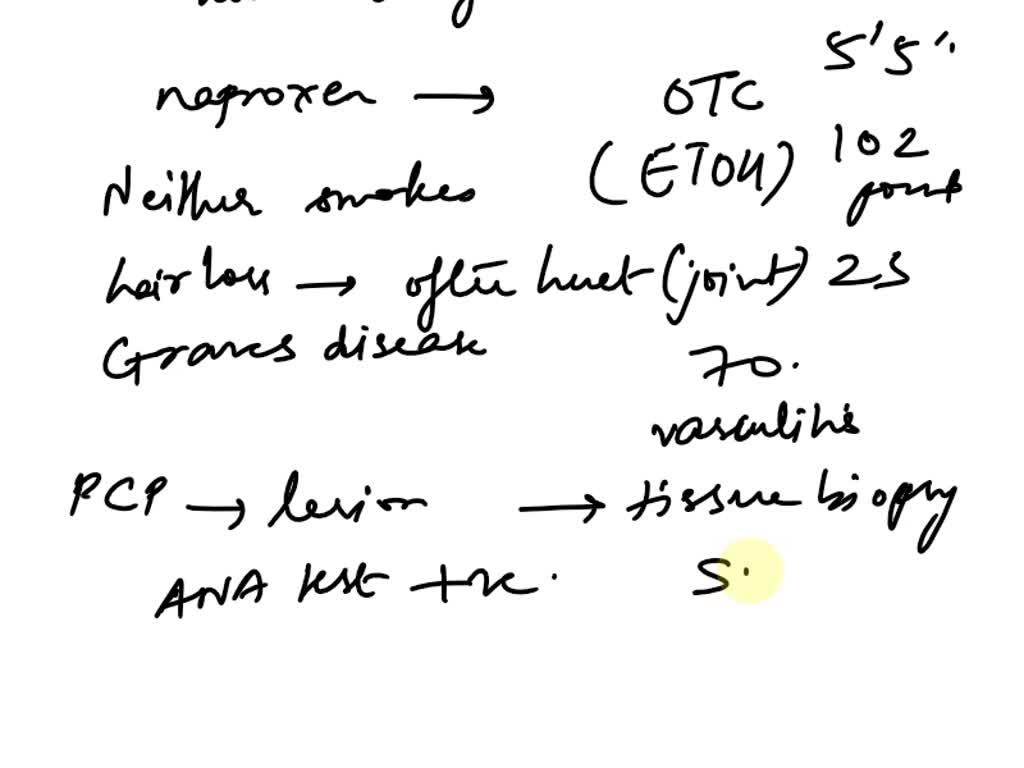 naproxen → OTC 5'5"
Neither smokes (ETOH) 102
pound
hair loss → often hurt (joint) 23
Graves disease 70.
vasculitis
PCP → lesion → tissue biopsy
ANA test +ve. S.